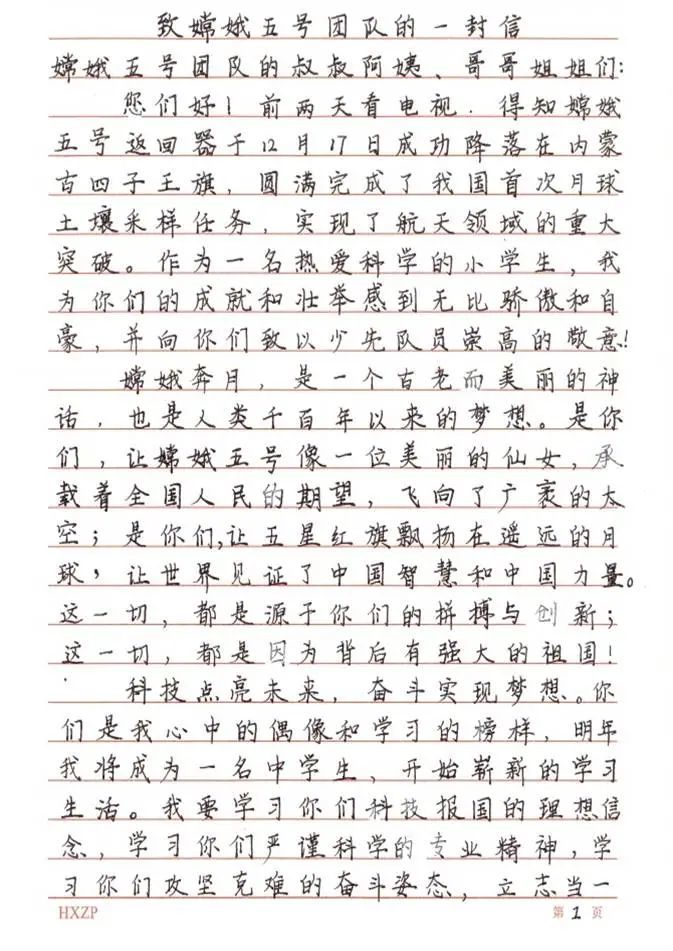 致嫦娥五号团队的一封信
嫦娥五号团队的叔叔阿姨、哥哥姐姐们:
您们好!前两天看电视.得知嫦娥
五号返回器于12月17日成功降落在内蒙
古四子王旗,圆满完成了我国首次月球
土壤采样任务,实现了航天领域的重大
突破。作为一名热爱科学的小学生,我
为你们的成就和壮举感到无比骄傲和自
豪,并向你们致以少先队员崇高的敬意!
嫦娥奔月,是一个古老而美丽的神
话,也是人类千百年以来的梦想。是你
们,让嫦娥五号像一位美丽的仙女,承
载着全国人民的期望,飞向了广袤的太
空;是你们,让五星红旗飘扬在遥远的月
球,让世界见证了中国智慧和中国力量。
这一切,都是源于你们的拼搏与创新;
这一切,都是因为背后有强大的祖国!
科技点亮未来,奋斗实现梦想。你
们是我心中的偶像和学习的榜样,明年
我将成为一名中学生,开始崭新的学习
生活。我要学习你们科技报国的理想信
念,学习你们严谨科学的专业精神,学
习你们攻坚克难的奋斗姿态,立志当一
HXZP 第1页